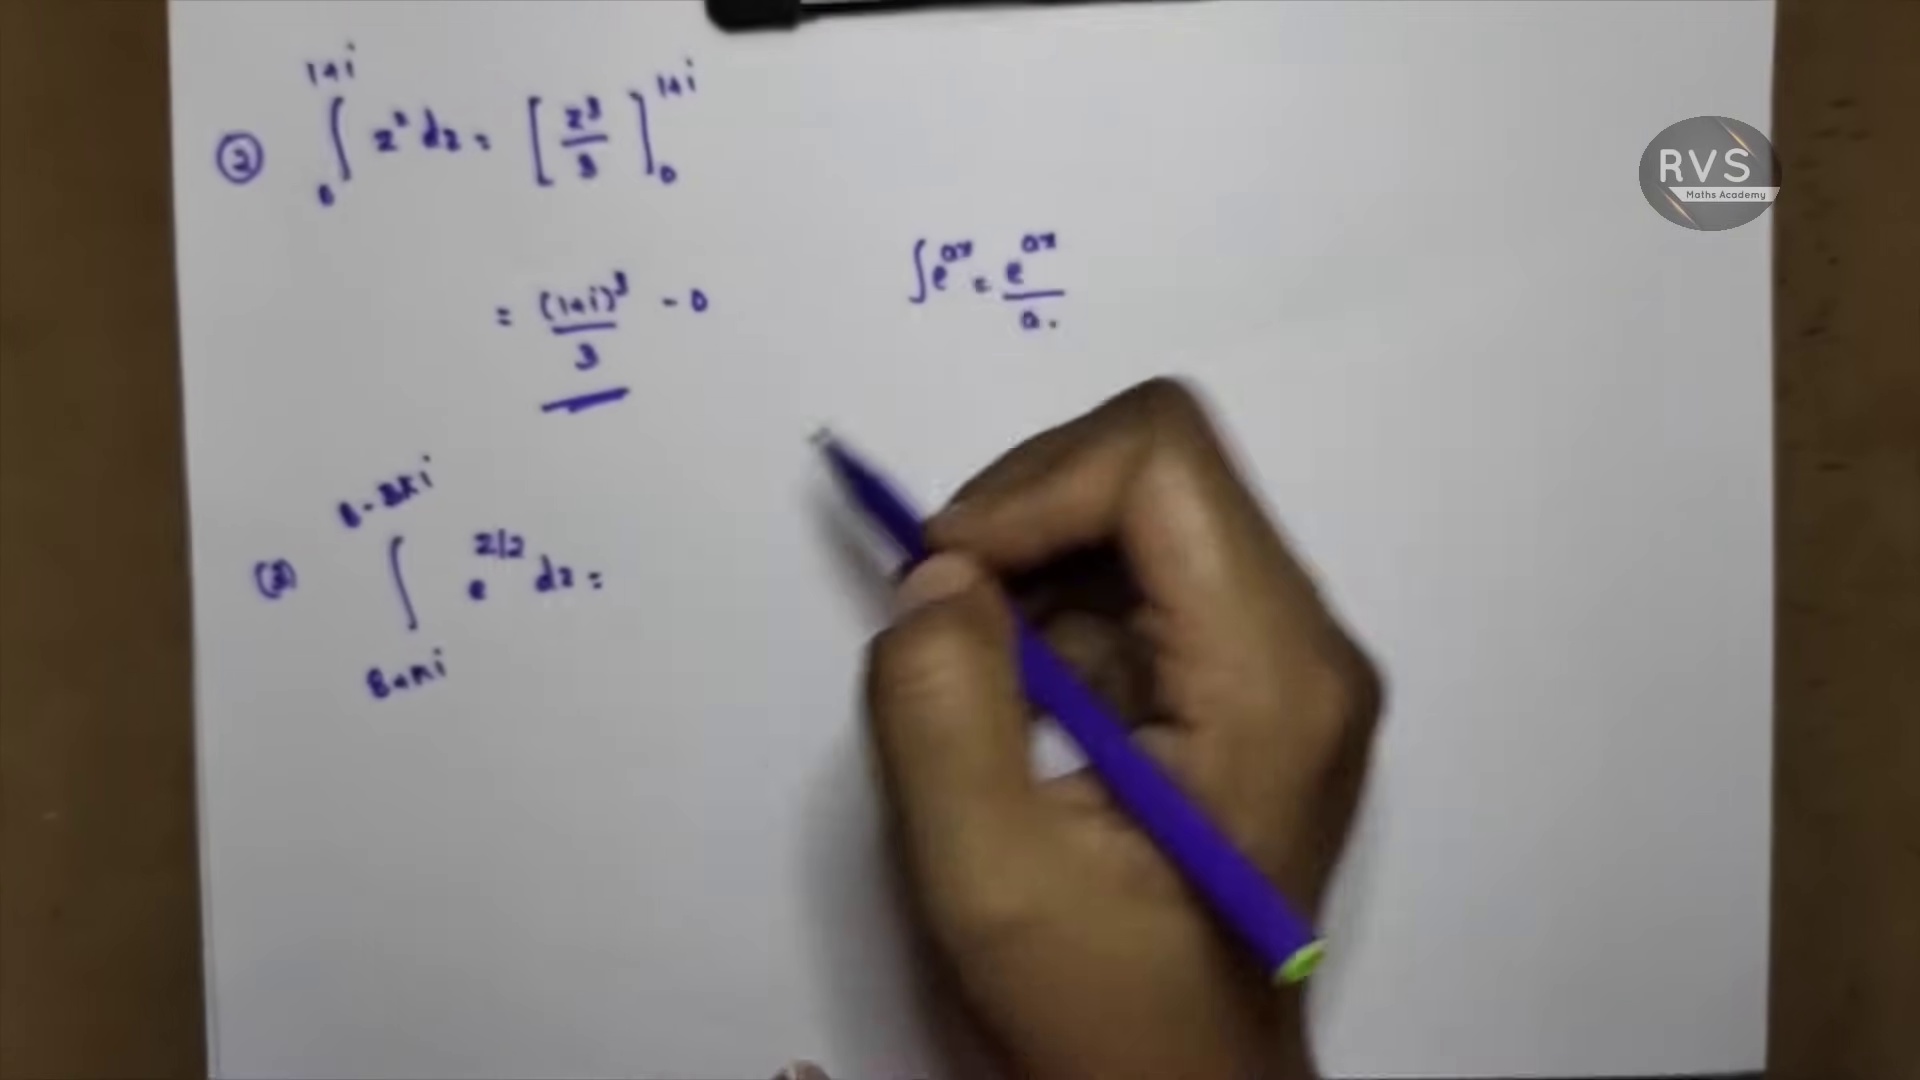 ② ∫₀¹⁺ⁱ z² dz = [z³/3]₀¹⁺ⁱ
= (1+i)³/3 - 0
∫e^ax = e^ax/a.
(3) ∫_{8+πi}^{8-3πi} e^{z/2} dz =
RVS
Maths Academy